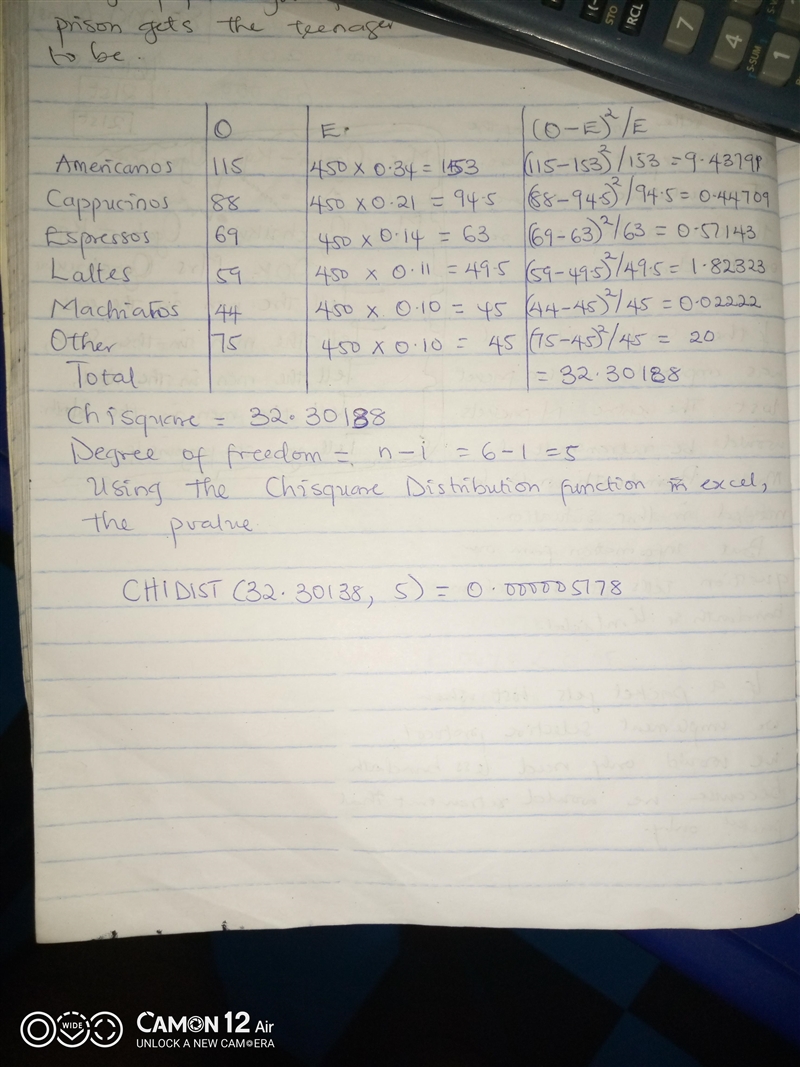 prison gets the teenager
to be.
STO
RCL
7
4
1
S-SUM
O E. (O-E)²/E
Americanos 115 450 x 0.34 = 153 (115-153)²/153 = 9.43791
Cappucinos 88 450 x 0.21 = 94.5 (88-94.5)²/94.5 = 0.44709
Espressos 69 450 x 0.14 = 63 (69-63)²/63 = 0.57143
Laltes 59 450 x 0.11 = 49.5 (59-49.5)²/49.5 = 1.82323
Machiatos 44 450 x 0.10 = 45 (44-45)²/45 = 0.02222
Other 75 450 x 0.10 = 45 (75-45)²/45 = 20
Total = 32.30188
Chisquare = 32.30188
Degree of freedom = n-i = 6-1 = 5
Using the Chisquare Distribution function in excel,
the pvalue
CHIDIST (32.30138, 5) = 0.000005178
WIDE
CAMON 12 Air
UNLOCK A NEW CAMERA